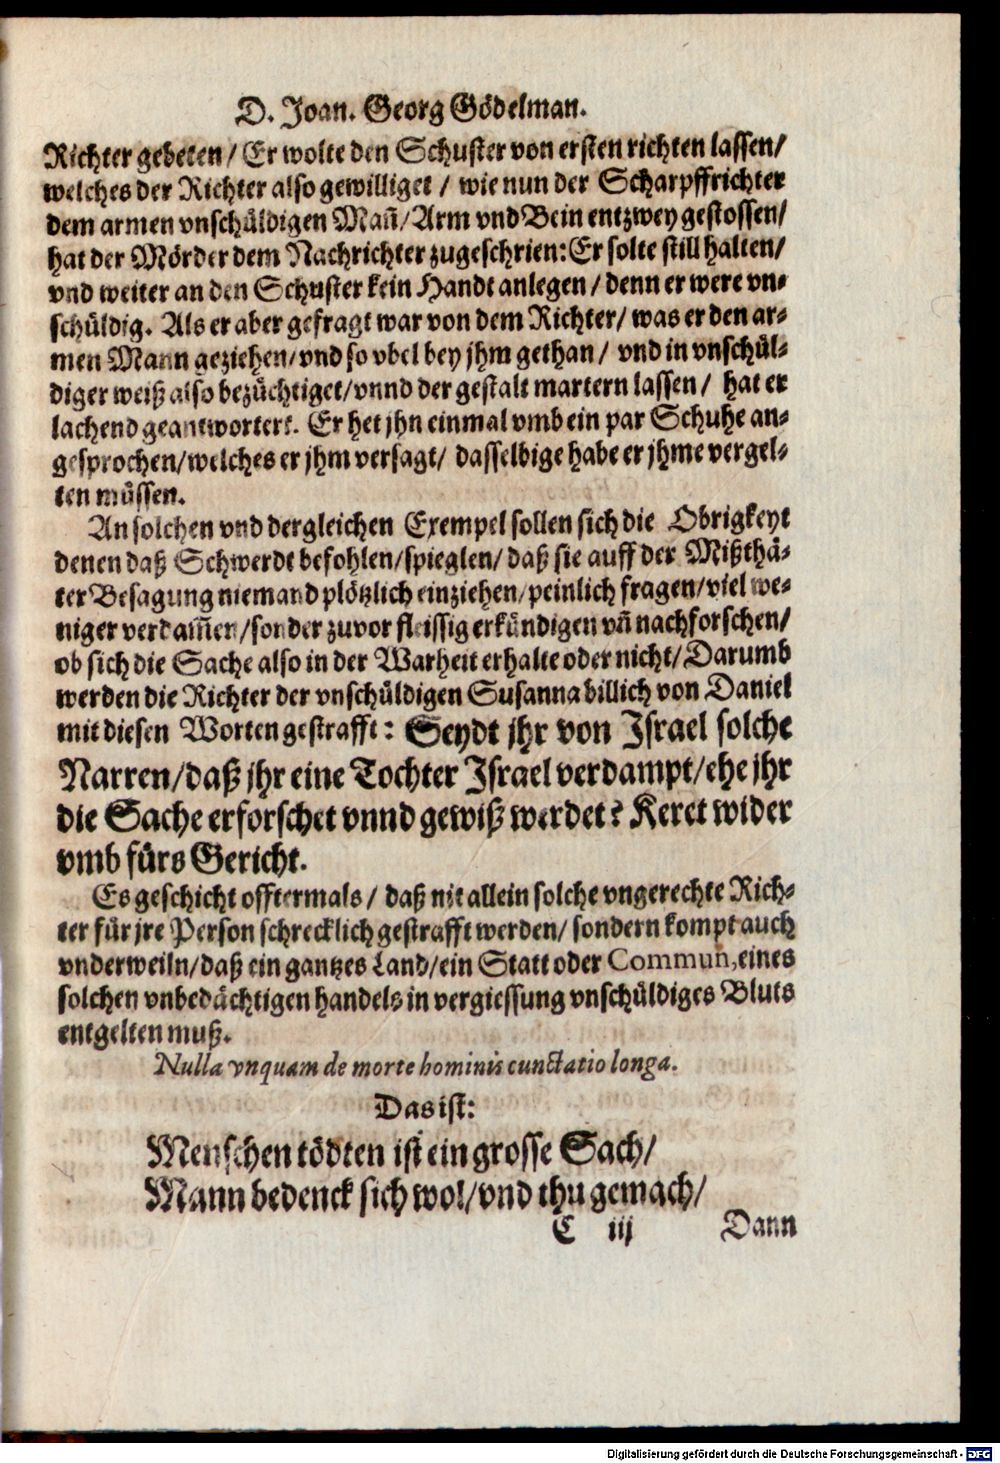 D. Joan. Georg Gödelman.
Richter gebeten / Er wolte den Schuster von ersten richten lassen/
welches der Richter also gewilliget / wie nun der Scharpffrichter
dem armen vnschüldigen Mañ/Arm vnd Bein entzwey gestossen/
hat der Mörder dem Nachrichter zugeschrien: Er solte still halten/
vnd weiter an den Schuster kein Handt anlegen / denn er were vn-
schüldig. Als er aber gefragt war von dem Richter/ was er den ar-
men Mann geziehen/vnd so vbel bey jhm gethan / vnd in vnschül-
diger weiß also bezüchtiget/vnnd der gestalt martern lassen / hat er
lachend geantwortert. Er het jhn einmal vmb ein par Schuhe an-
gesprochen/welches er jhm versagt/ dasselbige habe er jhme vergel-
ten müssen.
An solchen vnd dergleichen Exempel sollen sich die Obrigkeyt
denen daß Schwerdt befohlen/spieglen/ daß sie auff der Mißthä-
ter Besagung niemand plötzlich einziehen/peinlich fragen/viel we-
niger verdam̃en/sonder zuvor fleissig erkündigen vñ nachforschen/
ob sich die Sache also in der Warheit erhalte oder nicht/Darumb
werden die Richter der vnschüldigen Susanna billich von Daniel
mit diesen Worten gestrafft: Seydt jhr von Israel solche
Narren/daß jhr eine Tochter Israel verdampt/ehe jhr
die Sache erforschet vnnd gewiß werdet? Keret wider
vmb fürs Gericht.
Es geschicht offtermals / daß nit allein solche vngerechte Rich-
ter für jre Person schrecklich gestrafft werden/ sondern kompt auch
vnderweiln/daß ein gantzes Land/ein Statt oder Commun, eines
solchen vnbedächtigen handels in vergiessung vnschüldiges Bluts
entgelten muß.
Nulla vnquam de morte hominis cunctatio longa.
Das ist:
Menschen tödten ist ein grosse Sach/
Mann bedenck sich wol/vnd thu gemach/
C iij Dann
Digitalisierung gefördert durch die Deutsche Forschungsgemeinschaft - DFG